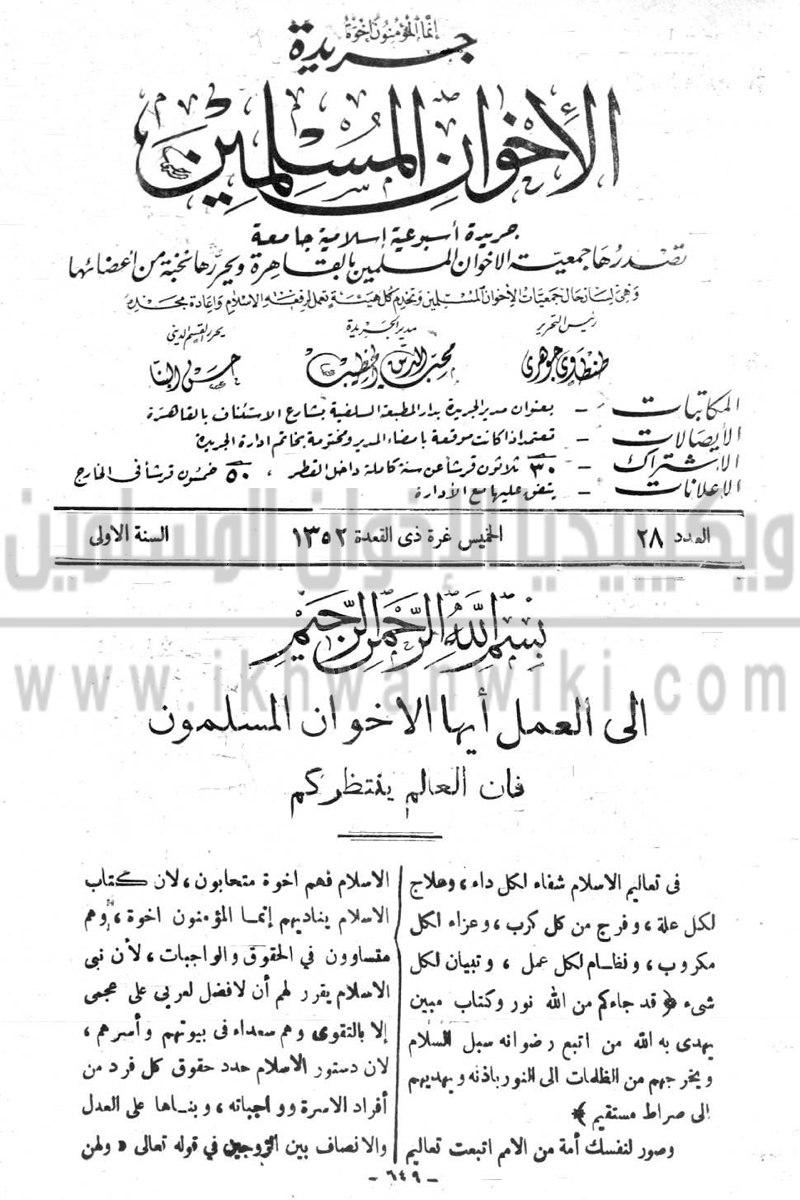 إنما المؤمنون إخوة
جريدة
الإخوان المسلمين
جريدة أسبوعية إسلامية جامعة
تصدرها جمعية الاخوان المسلمين بالقاهرة ويحررها نخبة من أعضائها
وهى لسان حال جمعيات الإخوان المسلمين وتخدم كل هيئة تعمل لرفعة الاسلام وإعادة مجده
رئيس التحرير
طنطاوى جوهرى
مدير الجريدة
محب الدين الخطيب
يحرر القسم الدينى
حسن البنا
المكاتبات - بعنوان مدير الجريدة بدار المطبعة السلفية بشارع الاستئناف بالقاهرة
الإيصالات - تعتمد اذا كانت موقعة بامضاء المدير ومختومة بخاتم ادارة الجريدة
الاشتراك - ٣٠ ثلاثون قرشا عن سنة كاملة داخل القطر ، ٥٠ خمسون قرشا فى الخارج
الإعلانات - يتفق عليها مع الأدارة
العدد ٢٨ الخميس غرة ذى القعدة ١٣٥٢ السنة الاولى
ويكيبيديا الإخوان المسلمين
بسم الله الرحمن الرحيم
www.ikhwanwiki.com
الى العمل أيها الاخوان المسلمون
فان العالم ينتظركم
فى تعاليم الاسلام شفاء لكل داء ، وعلاج
لكل علة ، وفرج من كل كرب ، وعزاء لكل
مكروب ، ونظام لكل عمل ، وتبيان لكل
شىء ﴿ قد جاءكم من الله نور وكتاب مبين
يهدى به الله من اتبع رضوانه سبل السلام
ويخرجهم من الظلمات الى النور باذنه ويهديهم
إلى صراط مستقيم ﴾
وصور لنفسك أمة من الامم اتبعت تعاليم
الاسلام فهم اخوة متحابون ، لان كتاب
الاسلام يناديهم إنما المؤمنون اخوة ، وهم
متساوون في الحقوق والواجبات ، لأن نبى
الاسلام يقرر لهم أن لافضل لعربى على عجمى
إلا بالتقوى وهم سعداء فى بيوتهم وأسرهم ،
لان دستور الاسلام حدد حقوق كل فرد من
أفراد الاسرة وواجباته ، وبناها على العدل
والانصاف بين الزوجين في قوله تعالى « ولهن
- ٦٤٩ -